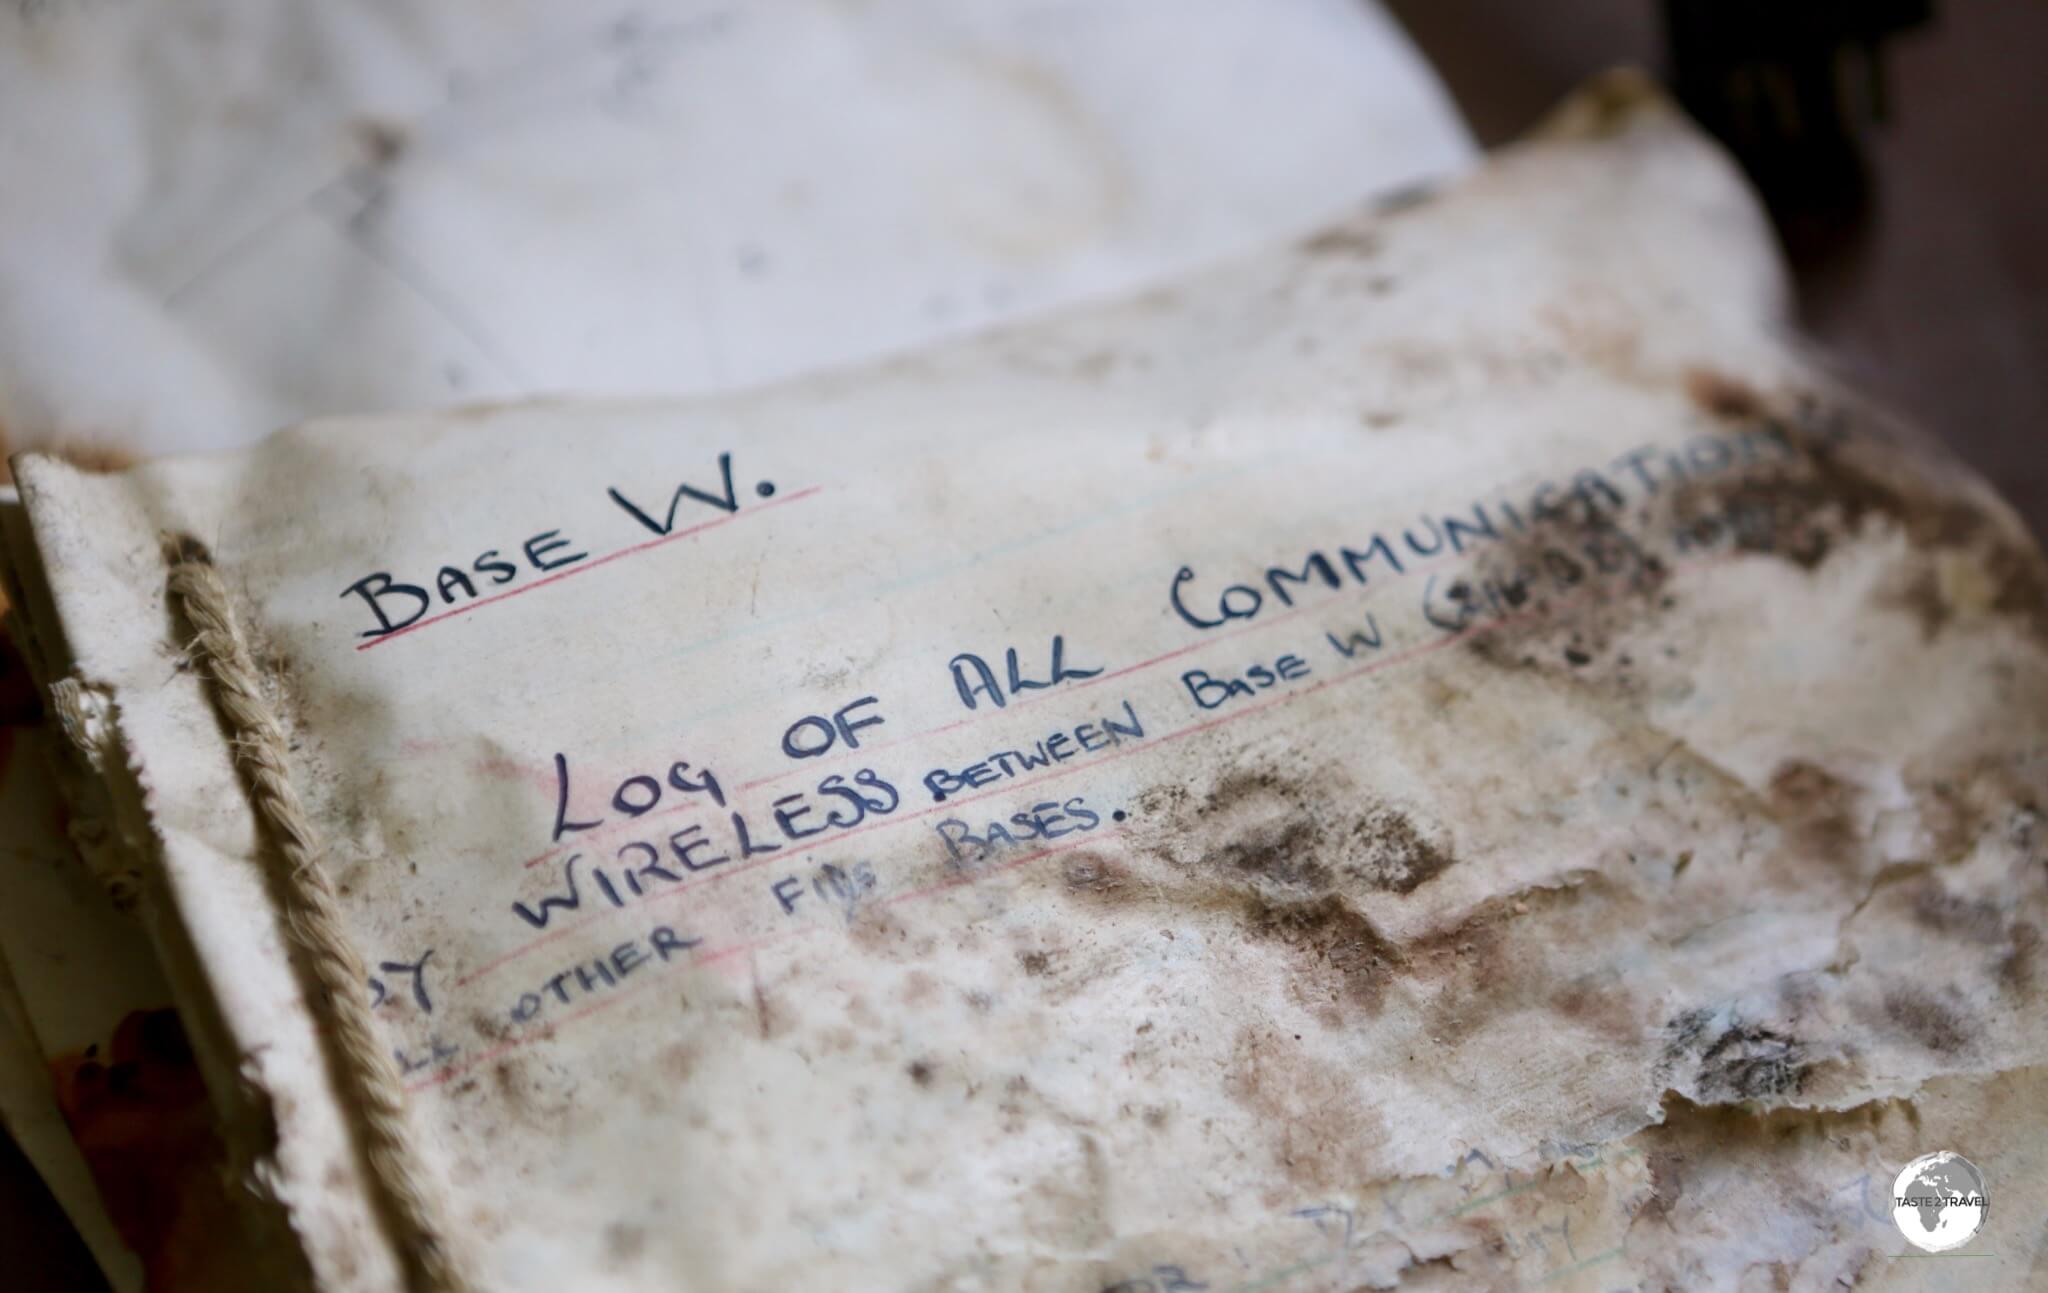 BASE W.
LOG OF ALL COMMUNICATION
BY WIRELESS BETWEEN BASE W
OTHER FIDS BASES.
TASTE2TRAVEL